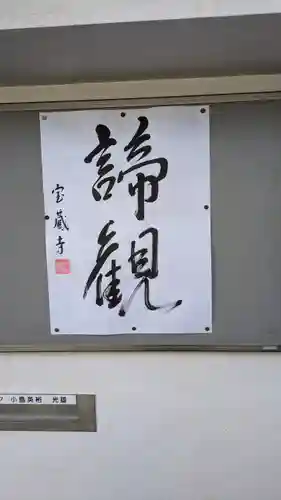 諦観
宝蔵寺
小島英裕 光雄